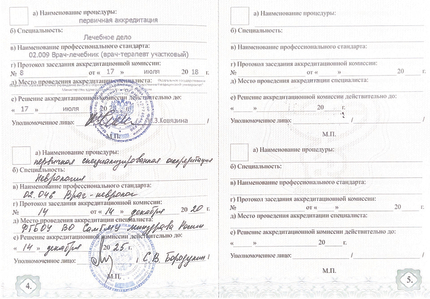 а) Наименование процедуры:
первичная аккредитация
б) Специальность:
Лечебное дело
в) Наименование профессионального стандарта:
02.009 Врач-лечебник (врач-терапевт участковый)
г) Протокол заседания аккредитационной комиссии:
№ 8 от « 17 » июля 20 18 г.
д) Место проведения аккредитации специалиста:
е) Решение аккредитационной комиссии действительно до:
« 17 » июля 20
Уполномоченное лицо:
М.П.
а) Наименование процедуры:
первичная специализированная аккредитация
б) Специальность:
Неврология
в) Наименование профессионального стандарта:
02.046 Врач-невролог
г) Протокол заседания аккредитационной комиссии:
№ 14 от « 14 » декабря 20 20 г.
д) Место проведения аккредитации специалиста:
ФГБОУ ВО СамГМУ Минздрава России
е) Решение аккредитационной комиссии действительно до:
« 14 » декабря 20 25 г.
Уполномоченное лицо:
М.П.
4.
а) Наименование процедуры:
б) Специальность:
в) Наименование профессионального стандарта:
г) Протокол заседания аккредитационной комиссии:
№ от « » 20 г.
д) Место проведения аккредитации специалиста:
е) Решение аккредитационной комиссии действительно до:
« » 20 г.
Уполномоченное лицо: / /
М.П.
а) Наименование процедуры:
б) Специальность:
в) Наименование профессионального стандарта:
г) Протокол заседания аккредитационной комиссии:
№ от « » 20 г.
д) Место проведения аккредитации специалиста:
е) Решение аккредитационной комиссии действительно до:
« » 20 г.
Уполномоченное лицо: / /
М.П.
5.